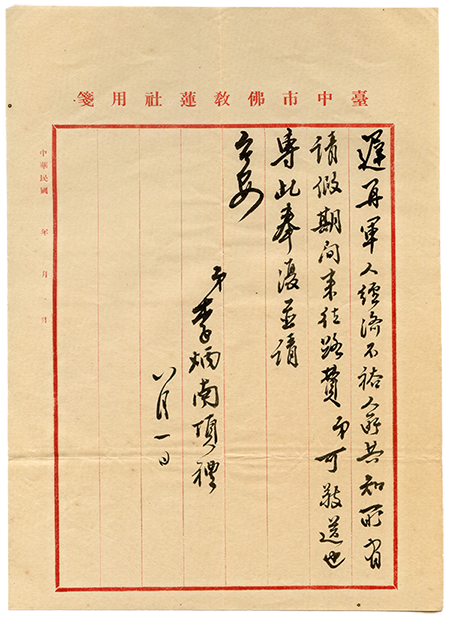 臺中市佛教蓮社用箋
遲再軍人經濟不裕人所共知所有
請假期间来往路費弟可敬送也
專此奉復並請
公安
弟李炳南頂禮
八月一日
中華民國 年 月 日